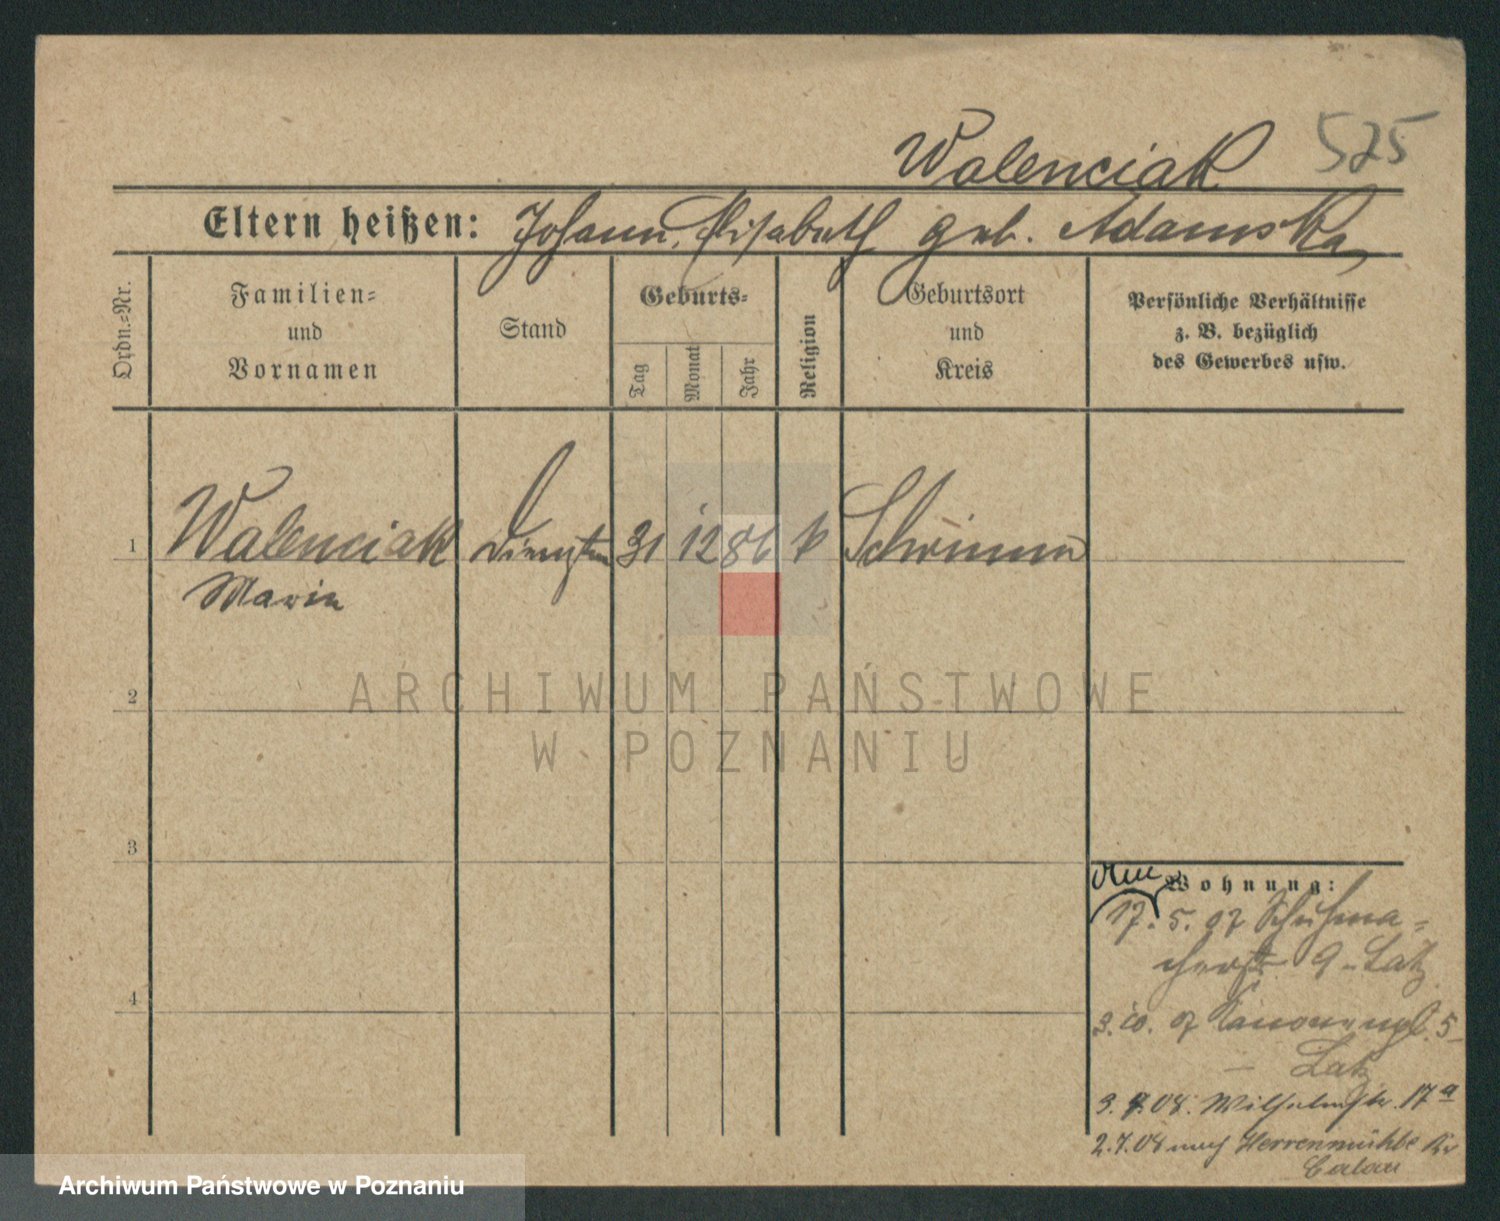 525
Walenciak
Eltern heißen: Johann, Elisabeth geb. Adamska
Ordn.-Nr.
Familien-
und
Vornamen
Stand
Geburts-
Tag
Monat
Jahr
Religion
Geburtsort
und
Kreis
Persönliche Verhältnisse
z. B. bezüglich
des Gewerbes usw.
1 Walenciak 31 12 86 k Schrimm
Marie
2
ARCHIWUM PAŃSTWOWE
W POZNANIU
3
4
Wohnung:
17. 5. 07 Schuhma-
cherstr. 9 - Latz
3. 10. 07 Kanonenpl. 5
- Latz
3. 08. Wilhelmstr. 17a
2.7.08 nach Herrenmühle Kr
Calau
Archiwum Państwowe w Poznaniu